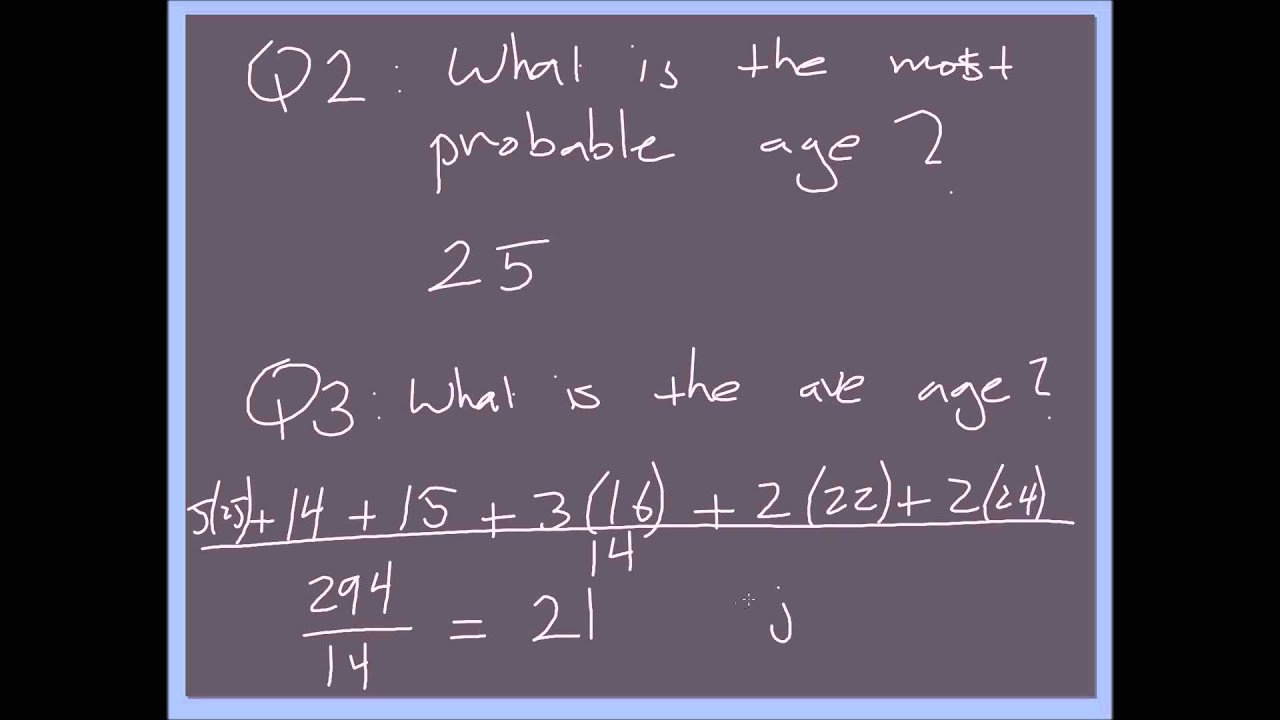 Q2: What is the most
probable age?
25
Q3: What is the ave age?
5(25)+14 + 15 + 3(16) + 2(22) + 2(24)
14
294
14
= 21
j